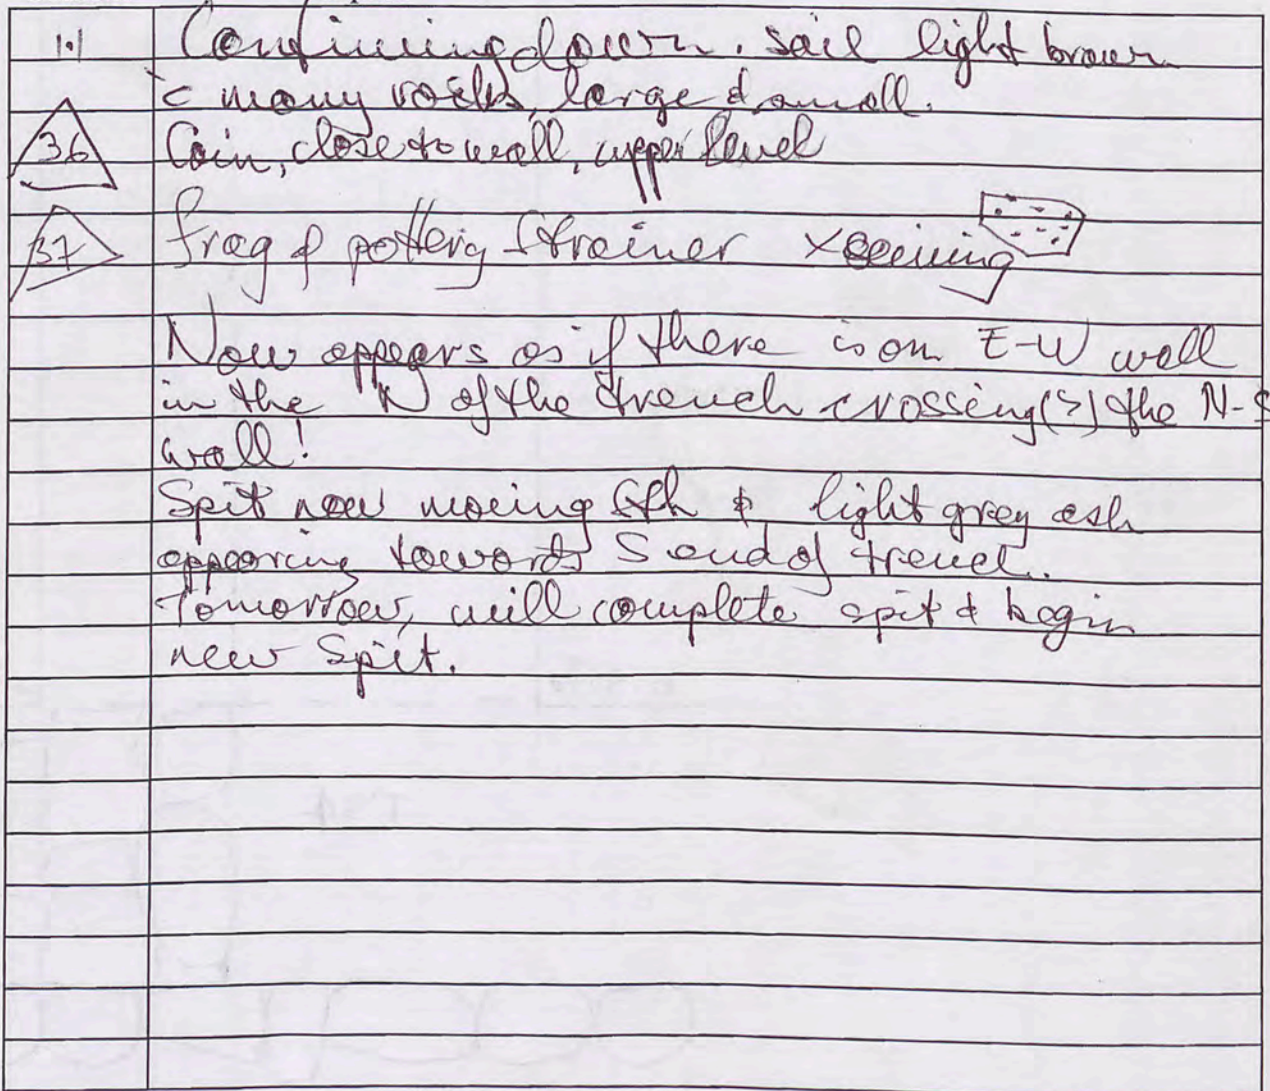 1.1 Continuing down. soil light brown
c̄ many rocks, large & small.
36 Coin, close to wall, upper level
37 frag of pottery strainer
Now appears as if there is an E-W wall
in the N of the trench crossing(?) the N-S
wall!
Spit now moving Sth & light grey ash
appearing towards S end of trench.
Tomorrow, will complete spit & begin
new Spit.